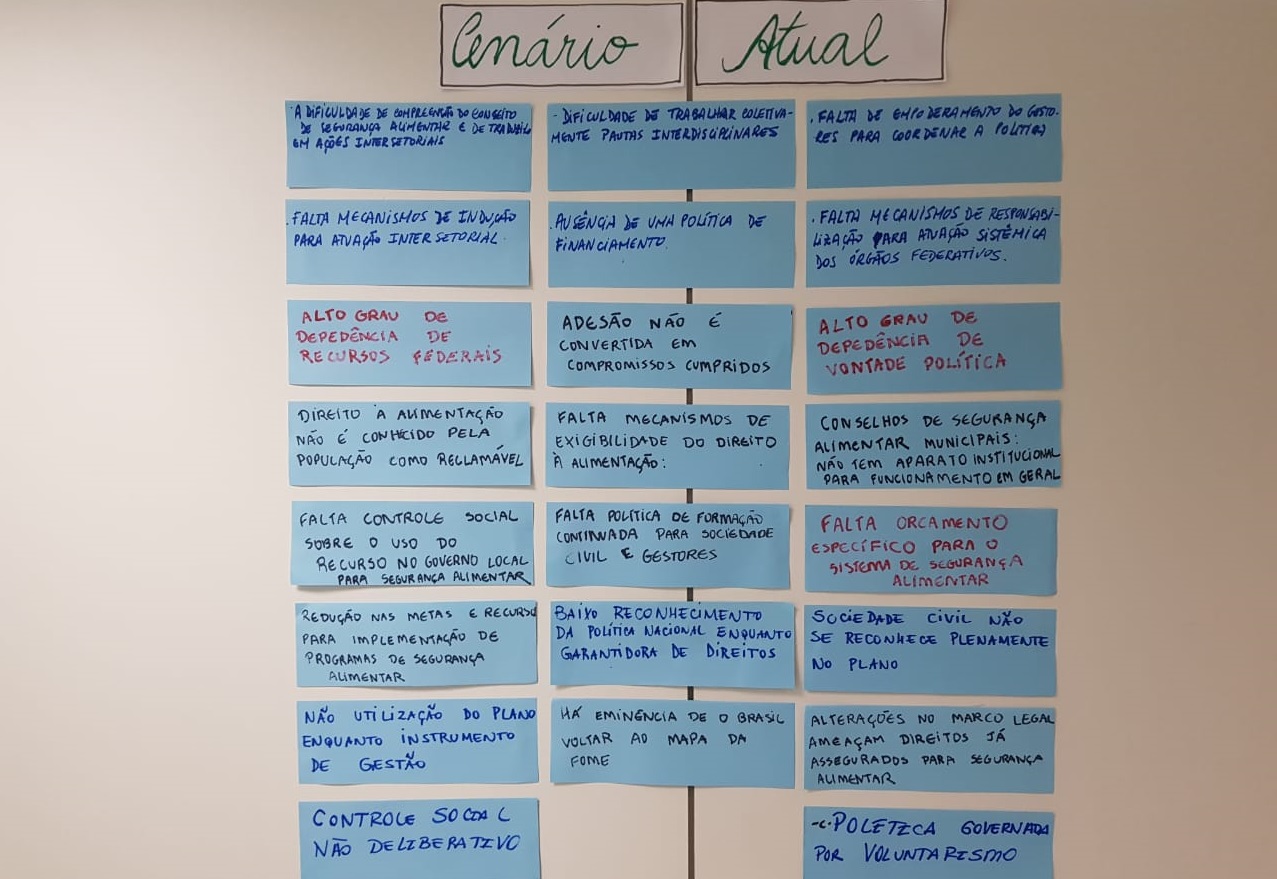 Cenário Atual
· A DIFICULDADE DE COMPREENSÃO DO CONSEITO
DE SEGURANÇA ALIMENTAR E DE TRADUZIR
EM AÇÕES INTERSETORIAIS
- DIFICULDADE DE TRABALHAR COLETIVA-
MENTE PAUTAS INTERDISCIPLINARES
. FALTA DE EMPODERAMENTO DO GESTO-
RES PARA COORDENAR A POLÍTICA
. FALTA MECANISMOS DE INDUÇÃO
PARA ATUAÇÃO INTERSETORIAL.
. AUSÊNCIA DE UMA POLÍTICA DE
FINANCIAMENTO.
. FALTA MECANISMOS DE RESPONSABI-
LIZAÇÃO PARA ATUAÇÃO SISTÊMICA
DOS ÓRGÃOS FEDERATIVOS.
ALTO GRAU DE
DEPEDÊNCIA DE
RECURSOS FEDERAIS
ADESÃO NÃO É
CONVERTIDA EM
COMPROMISSOS CUMPRIDOS
ALTO GRAU DE
DEPEDÊNCIA DE
VONTADE POLÍTICA
DIREITO À ALIMENTAÇÃO
NÃO É CONHECIDO PELA
POPULAÇÃO COMO RECLAMÁVEL
FALTA MECANISMOS DE
EXIGIBILIDADE DO DIREITO
À ALIMENTAÇÃO:
CONSELHOS DE SEGURANÇA
ALIMENTAR MUNICIPAIS:
NÃO TEM APARATO INSTITUCIONAL
PARA FUNCIONAMENTO EM GERAL
FALTA CONTROLE SOCIAL
SOBRE O USO DO
RECURSO NO GOVERNO LOCAL
PARA SEGURANÇA ALIMENTAR
FALTA POLÍTICA DE FORMAÇÃO
CONTINUADA PARA SOCIEDADE
CIVIL E GESTORES
FALTA ORCAMENTO
ESPECÍFICO PARA O
SISTEMA DE SEGURANÇA
ALIMENTAR
REDUÇÃO NAS METAS E RECURSO
PARA IMPLEMENTAÇÃO DE
PROGRAMAS DE SEGURANÇA
ALIMENTAR
BAIXO RECONHECIMENTO
DA POLÍTICA NACIONAL ENQUANTO
GARANTIDORA DE DIREITOS
SOCIEDADE CIVIL NÃO
SE RECONHECE PLENAMENTE
NO PLANO
NÃO UTILIZAÇÃO DO PLANO
ENQUANTO INSTRUMENTO
DE GESTÃO
HÁ EMINÊNCIA DE O BRASIL
VOLTAR AO MAPA DA
FOME
ALTERAÇÕES NO MARCO LEGAL
AMEAÇAM DIREITOS JÁ
ASSEGURADOS PARA SEGURANÇA
ALIMENTAR
CONTROLE SOCIAL
NÃO DELIBERATIVO
POLÍTICA GOVERNADA
POR VOLUNTARISMO